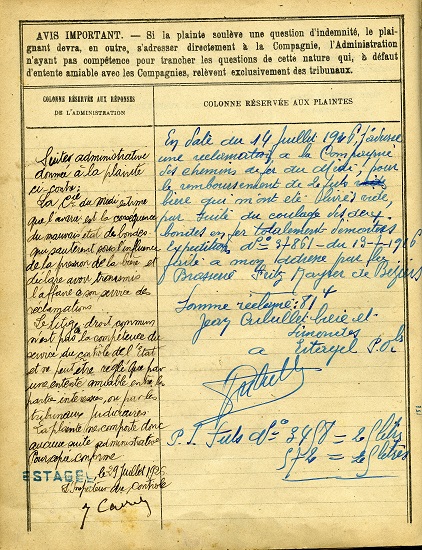 AVIS IMPORTANT. — Si la plainte soulève une question d'indemnité, le plai-
gnant devra, en outre, s'adresser directement à la Compagnie, l'Administration
n'ayant pas compétence pour trancher les questions de cette nature qui, à défaut
d'entente amiable avec les Compagnies, relèvent exclusivement des tribunaux.
COLONNE RÉSERVÉE AUX RÉPONSES
DE L'ADMINISTRATION
Suites administrative
donnée à la plainte
ci-contre:
La Cie du Midi écrit
que l'avarie est la conséquence
du mauvais état des bondes
qui sautèrent sous l'influence
de la pression de la bière et
déclare avoir transmis
l'affaire à son service des
réclamations.
Le litige droit commun
n'est pas de la compétence du
service du contrôle de l'Etat
et ne peut être réglé que par
une entente amiable entre les
parties intéressées, ou par les
tribunaux judiciaires.
La plainte ne comporte donc
aucune suite administrative
Pour copie conforme
ESTAGEL le 29 Juillet 1926
L'Inspecteur du Contrôle
COLONNE RÉSERVÉE AUX PLAINTES
En date du 14 Juillet 1926, j'adresse
une réclamation, à la Compagnie
des chemins de fer du Midi, pour
le remboursement de 2 futs
bière qui m'ont été livrés vide,
par suite du coulage des deux
bondes en fer totalement démontées
Expédition No 37861 du 13-7-1926
faite à mon adresse par la
Brasserie Fritz de Béziers
Somme réclamée: 81
Jean bière et
Limonades
à Estagel P. Ol
P. S. Futs No 3458 = 25 litres
572 = 25 litres